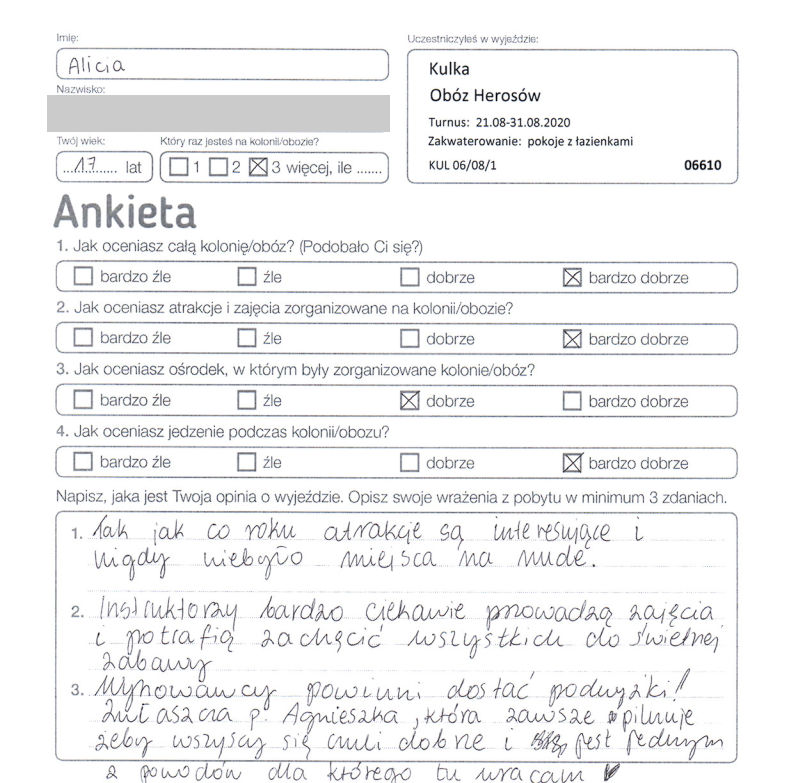 Imię:
Alicia
Nazwisko:
Twój wiek:
17 lat
Który raz jesteś na kolonii/obozie?
1 2 3 więcej, ile .......
Uczestniczyłeś w wyjeździe:
Kulka
Obóz Herosów
Turnus: 21.08-31.08.2020
Zakwaterowanie: pokoje z łazienkami
KUL 06/08/1 06610
Ankieta
1. Jak oceniasz całą kolonię/obóz? (Podobało Ci się?)
bardzo źle źle dobrze bardzo dobrze
2. Jak oceniasz atrakcje i zajęcia zorganizowane na kolonii/obozie?
bardzo źle źle dobrze bardzo dobrze
3. Jak oceniasz ośrodek, w którym były zorganizowane kolonie/obóz?
bardzo źle źle dobrze bardzo dobrze
4. Jak oceniasz jedzenie podczas kolonii/obozu?
bardzo źle źle dobrze bardzo dobrze
Napisz, jaka jest Twoja opinia o wyjeździe. Opisz swoje wrażenia z pobytu w minimum 3 zdaniach.
1. Tak jak co roku atrakcje są interesujące i
nigdy niebyło miejsca na nude.
2. Instruktorzy bardzo ciekawie prowadzą zajęcia
i potrafią zachęcić wszystkich do świetnej
zabawy
3. Wyhowawcy powinni dostać podwyżki!
Zwłaszcza p. Agnieszka, która zawsze pilnuje
żeby wszyscy się czuli dobrze i jest jednym
z powodów dla którego tu wracam